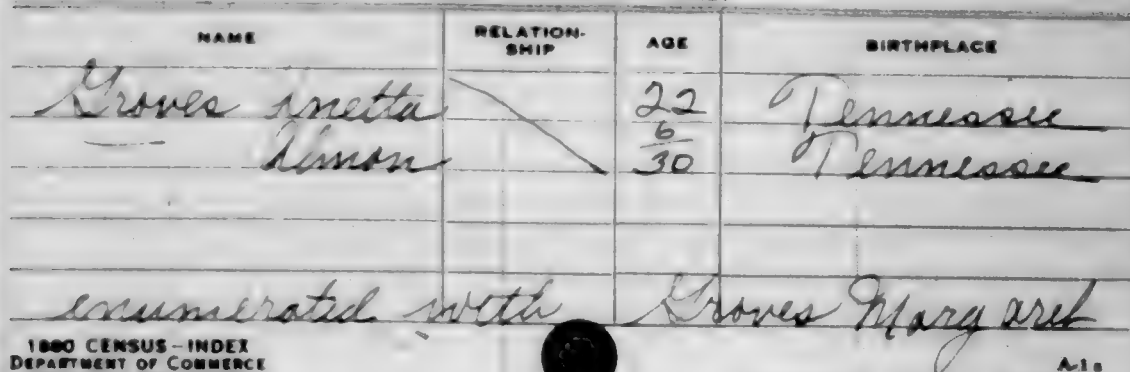 NAME RELATION-SHIP AGE BIRTHPLACE
Groves Inetta 22 Tennessee
— Simon 6/30 Tennessee
enumerated with Groves Margaret
1880 CENSUS-INDEX
DEPARTMENT OF COMMERCE A-1a